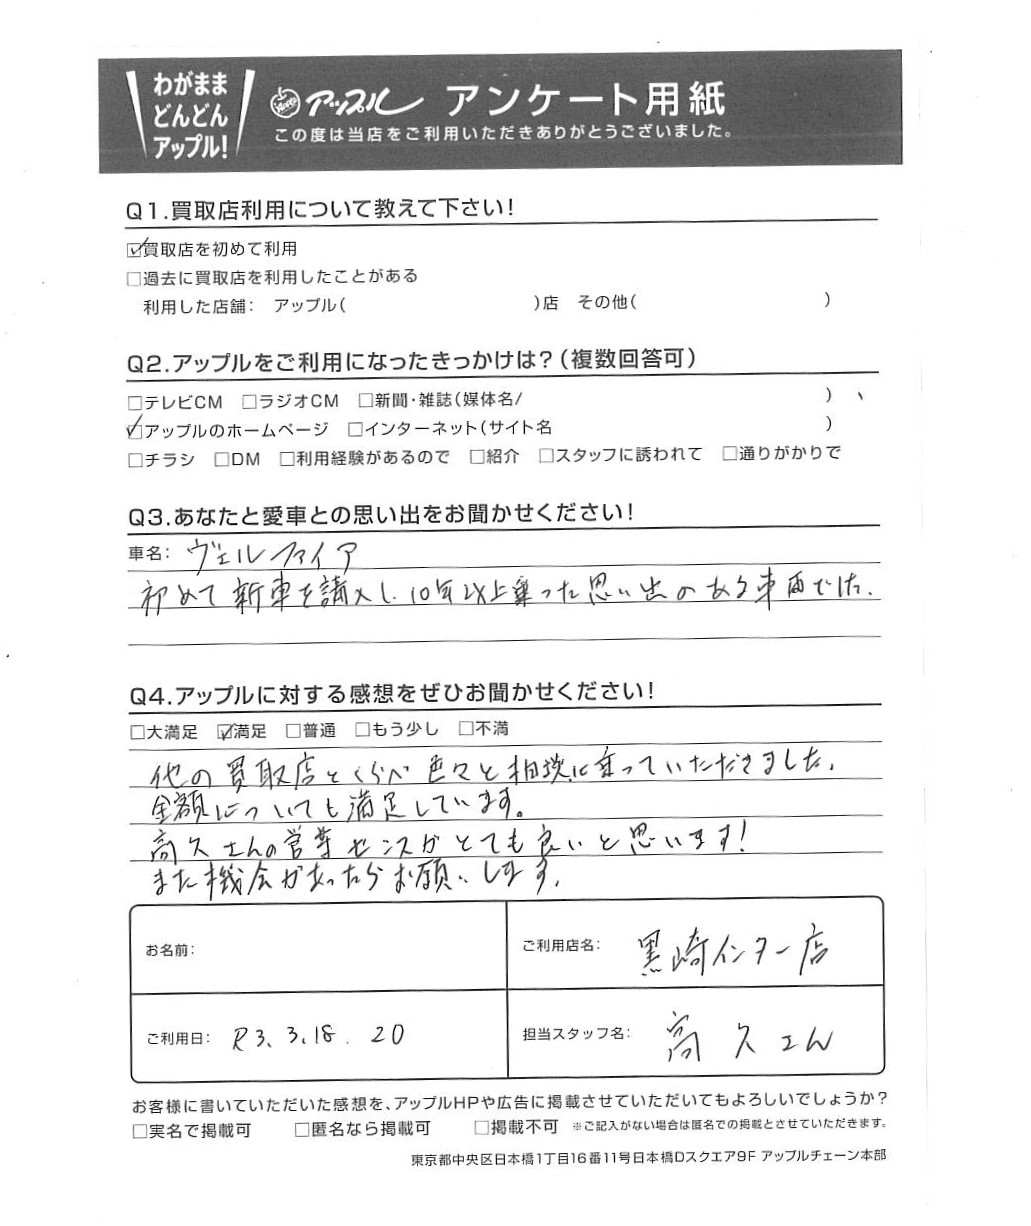 わがまま
どんどん
アップル!
アップル アンケート用紙
この度は当店をご利用いただきありがとうございました。
Q1.買取店利用について教えて下さい!
☑買取店を初めて利用
□過去に買取店を利用したことがある
利用した店舗: アップル( )店 その他( )
Q2.アップルをご利用になったきっかけは?(複数回答可)
□テレビCM □ラジオCM □新聞・雑誌(媒体名/ )
☑アップルのホームページ □インターネット(サイト名 )
□チラシ □DM □利用経験があるので □紹介 □スタッフに誘われて □通りがかりで
Q3.あなたと愛車との思い出をお聞かせください!
車名: ヴェルファイア
初めて新車を購入し、10年以上乗った思い出のある車両でした。
Q4.アップルに対する感想をぜひお聞かせください!
□大満足 ☑満足 □普通 □もう少し □不満
他の買取店とくらべ色々と相談に乗っていただきました。
金額についても満足しています。
高久さんの営業センスがとても良いと思います!
また機会があったらお願いします。
お名前:
ご利用店名: 黒崎インター店
ご利用日: R3.3.18.20
担当スタッフ名: 高久さん
お客様に書いていただいた感想を、アップルHPや広告に掲載させていただいてもよろしいでしょうか?
□実名で掲載可 □匿名なら掲載可 □掲載不可 ※ご記入がない場合は匿名での掲載とさせていただきます。
東京都中央区日本橋1丁目16番11号日本橋Dスクエア9F アップルチェーン本部